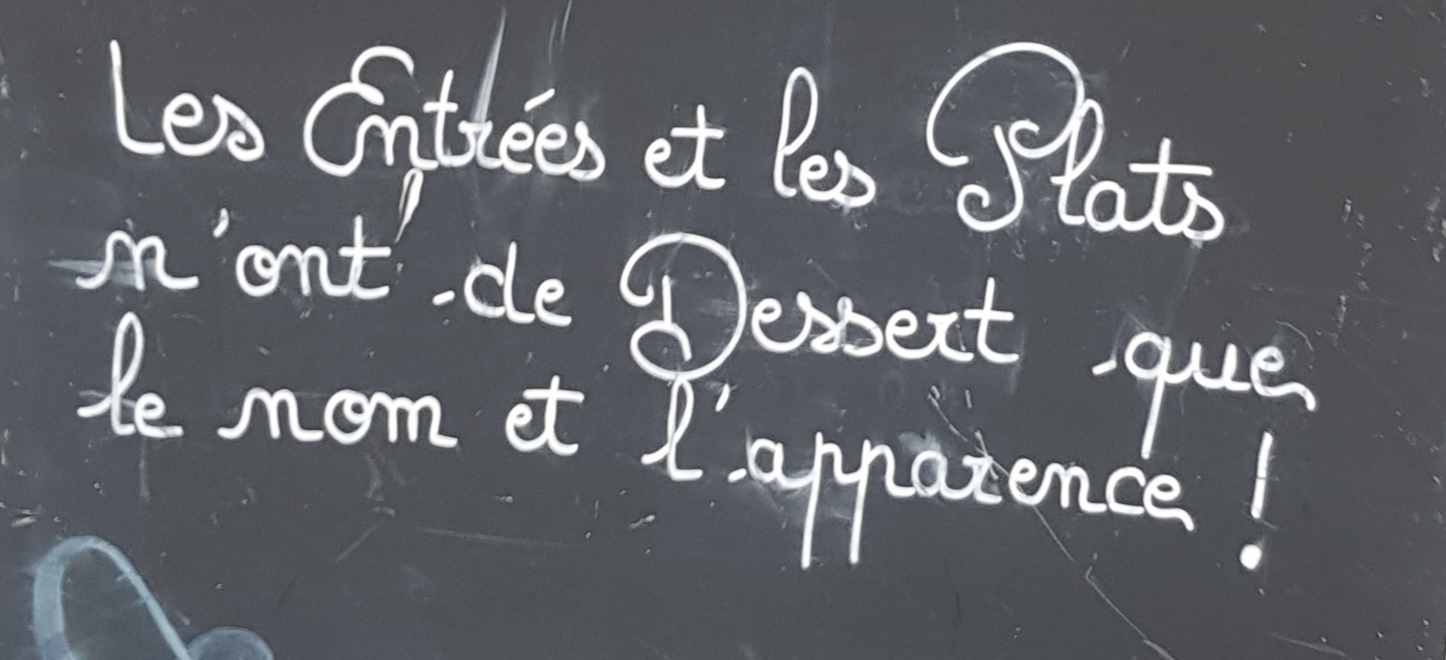 Les Entrées et les Plats
n'ont de Dessert que
le nom et l'apparence !